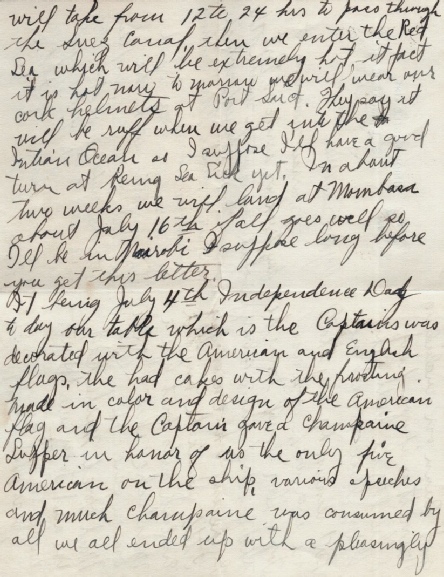 will take from 12 to 24 hrs to pass through
the Suez Canal then we enter the Red
Sea which will be extremely hot it fact
it is hot now to morrow we will wear our
cork helmets at Port Said. They say it
will be ruff when we get into the
Indian Ocean so I suppose I'll have a good
turn at being Sea Sick yet. In about
two weeks we will land at Mombasa
about July 16th if all goes well so
I'll be in Nairobi I suppose long before
you get this letter
It being July 4th Independence Day
to day our table which is the Captains was
decorated with the American and English
flags, the had cakes with the frosting
made in color and design of the American
flag and the Captain gave a Champaine
Supper in honor of us the only five
American on the ship, various speeches
and much champaine was consumed by
all we all ended up with a pleasingly